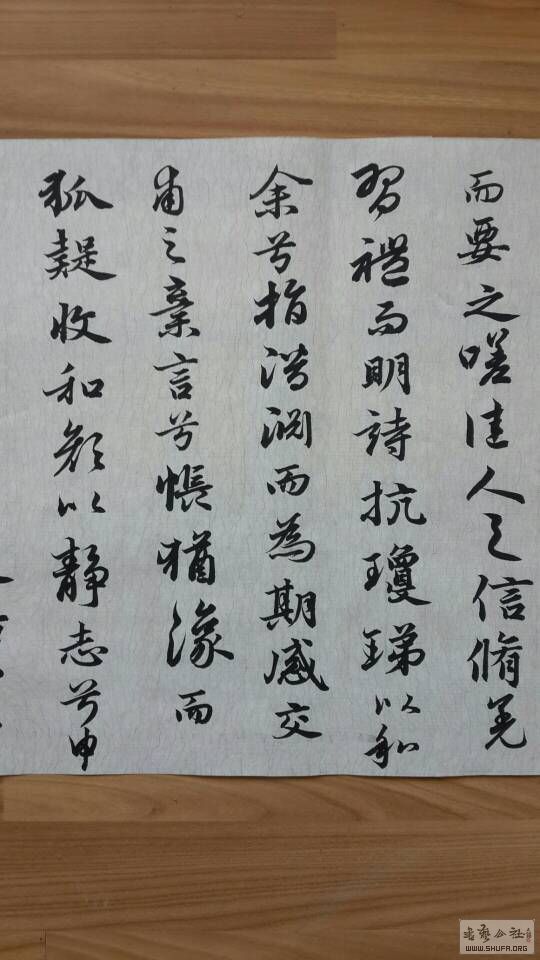 而要之嗟佳人之信脩羌
習禮而明詩抗瓊珶以和
余兮指潛淵而為期感交
甫之棄言兮悵猶豫而
狐疑收和顏以靜志兮申
書藝公社
WWW.SHUFA.ORG